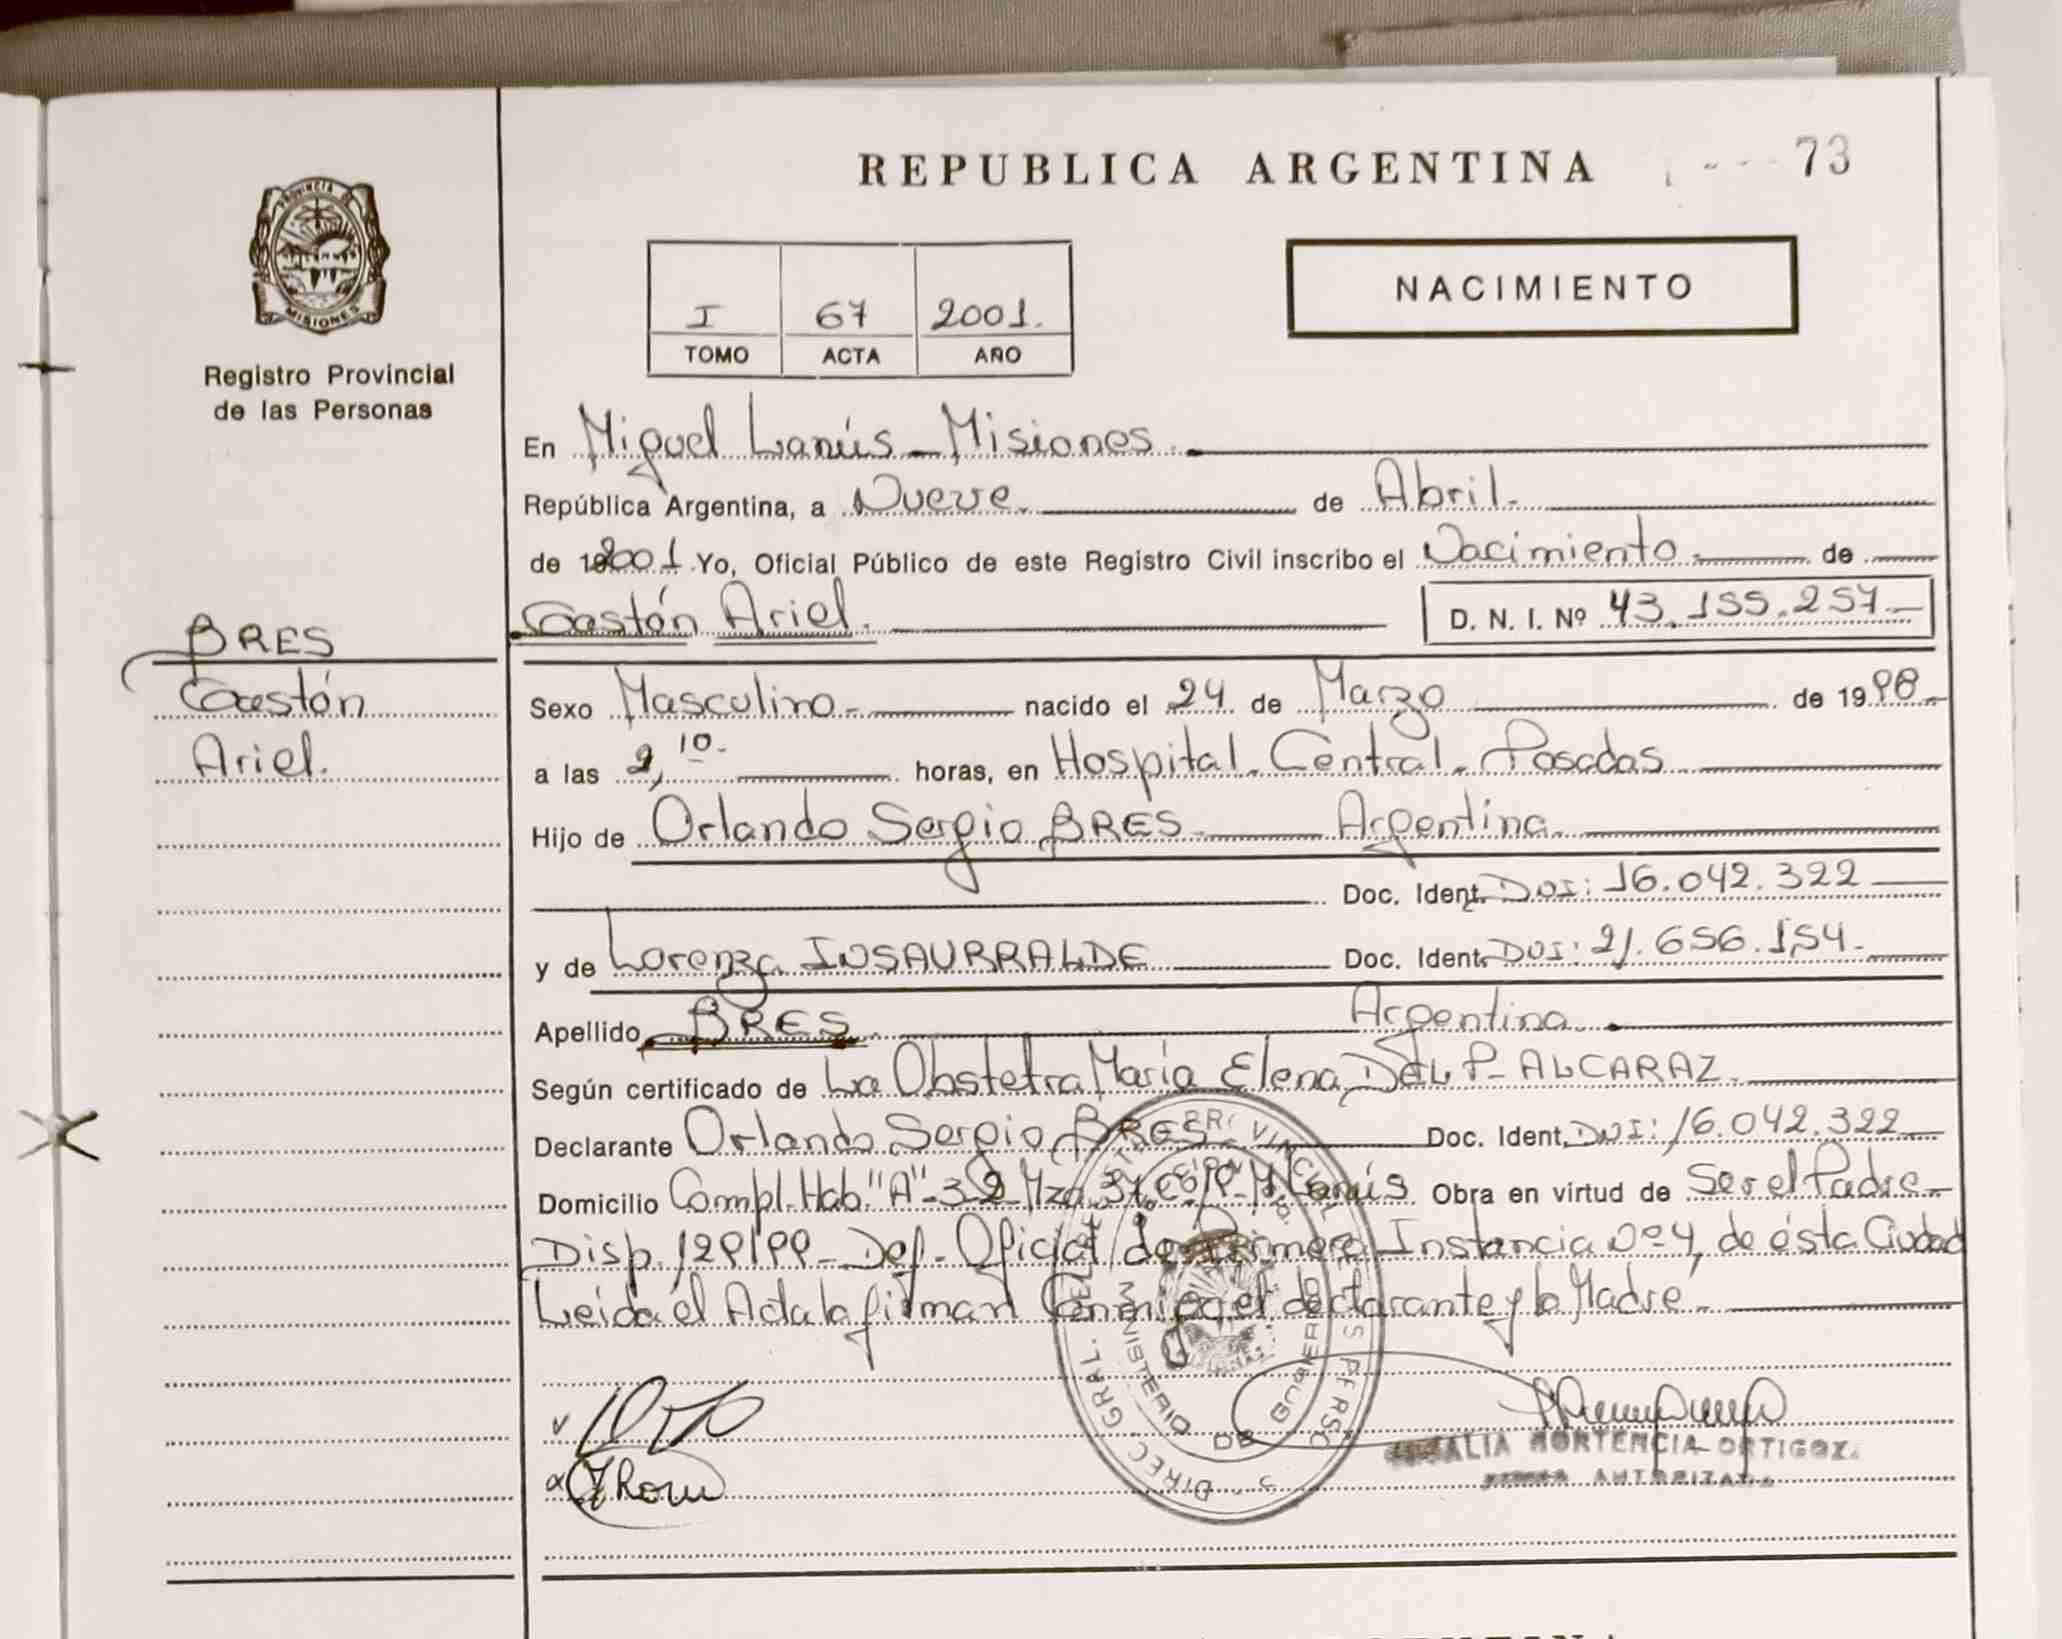 REPUBLICA ARGENTINA
73
PROVINCIA DE
MISIONES
Registro Provincial
de las Personas
I 67 2001.
TOMO ACTA AÑO
NACIMIENTO
En Miguel Lanús - Misiones.
República Argentina, a Nueve. de Abril.
de 192001 Yo, Oficial Público de este Registro Civil inscribo el Nacimiento de
Gastón Ariel. D. N. I. Nº 43.155.257
BRES
Gastón
Ariel.
Sexo Masculino - nacido el 24 de Marzo de 1998
a las 2,10. horas, en Hospital Central - Posadas
Hijo de Orlando Sergio BRES Argentina.
Doc. Ident. DNI: 16.042.322
y de Lorenza INSAURRALDE Doc. Ident. DNI: 21.656.154.
Apellido BRES Argentina.
Según certificado de La Obstetra María Elena DEL P- ALCARAZ.
Declarante Orlando Sergio BRES Doc. Ident. DNI: 16.042.322
Domicilio Compl. Hab. "A"-32 Mza Lanús Obra en virtud de Ser el Padre-
Disp. 129/99 - Def. Oficial de Primera Instancia Nº 4, de ésta Ciudad
Leida el Acta la firman Conmigo el declarante y la Madre -
DIREC. GRAL.
MINISTERIO DE GOBIERNO
HORTENCIA ORTIGOZA
FIRMA AUTORIZADA